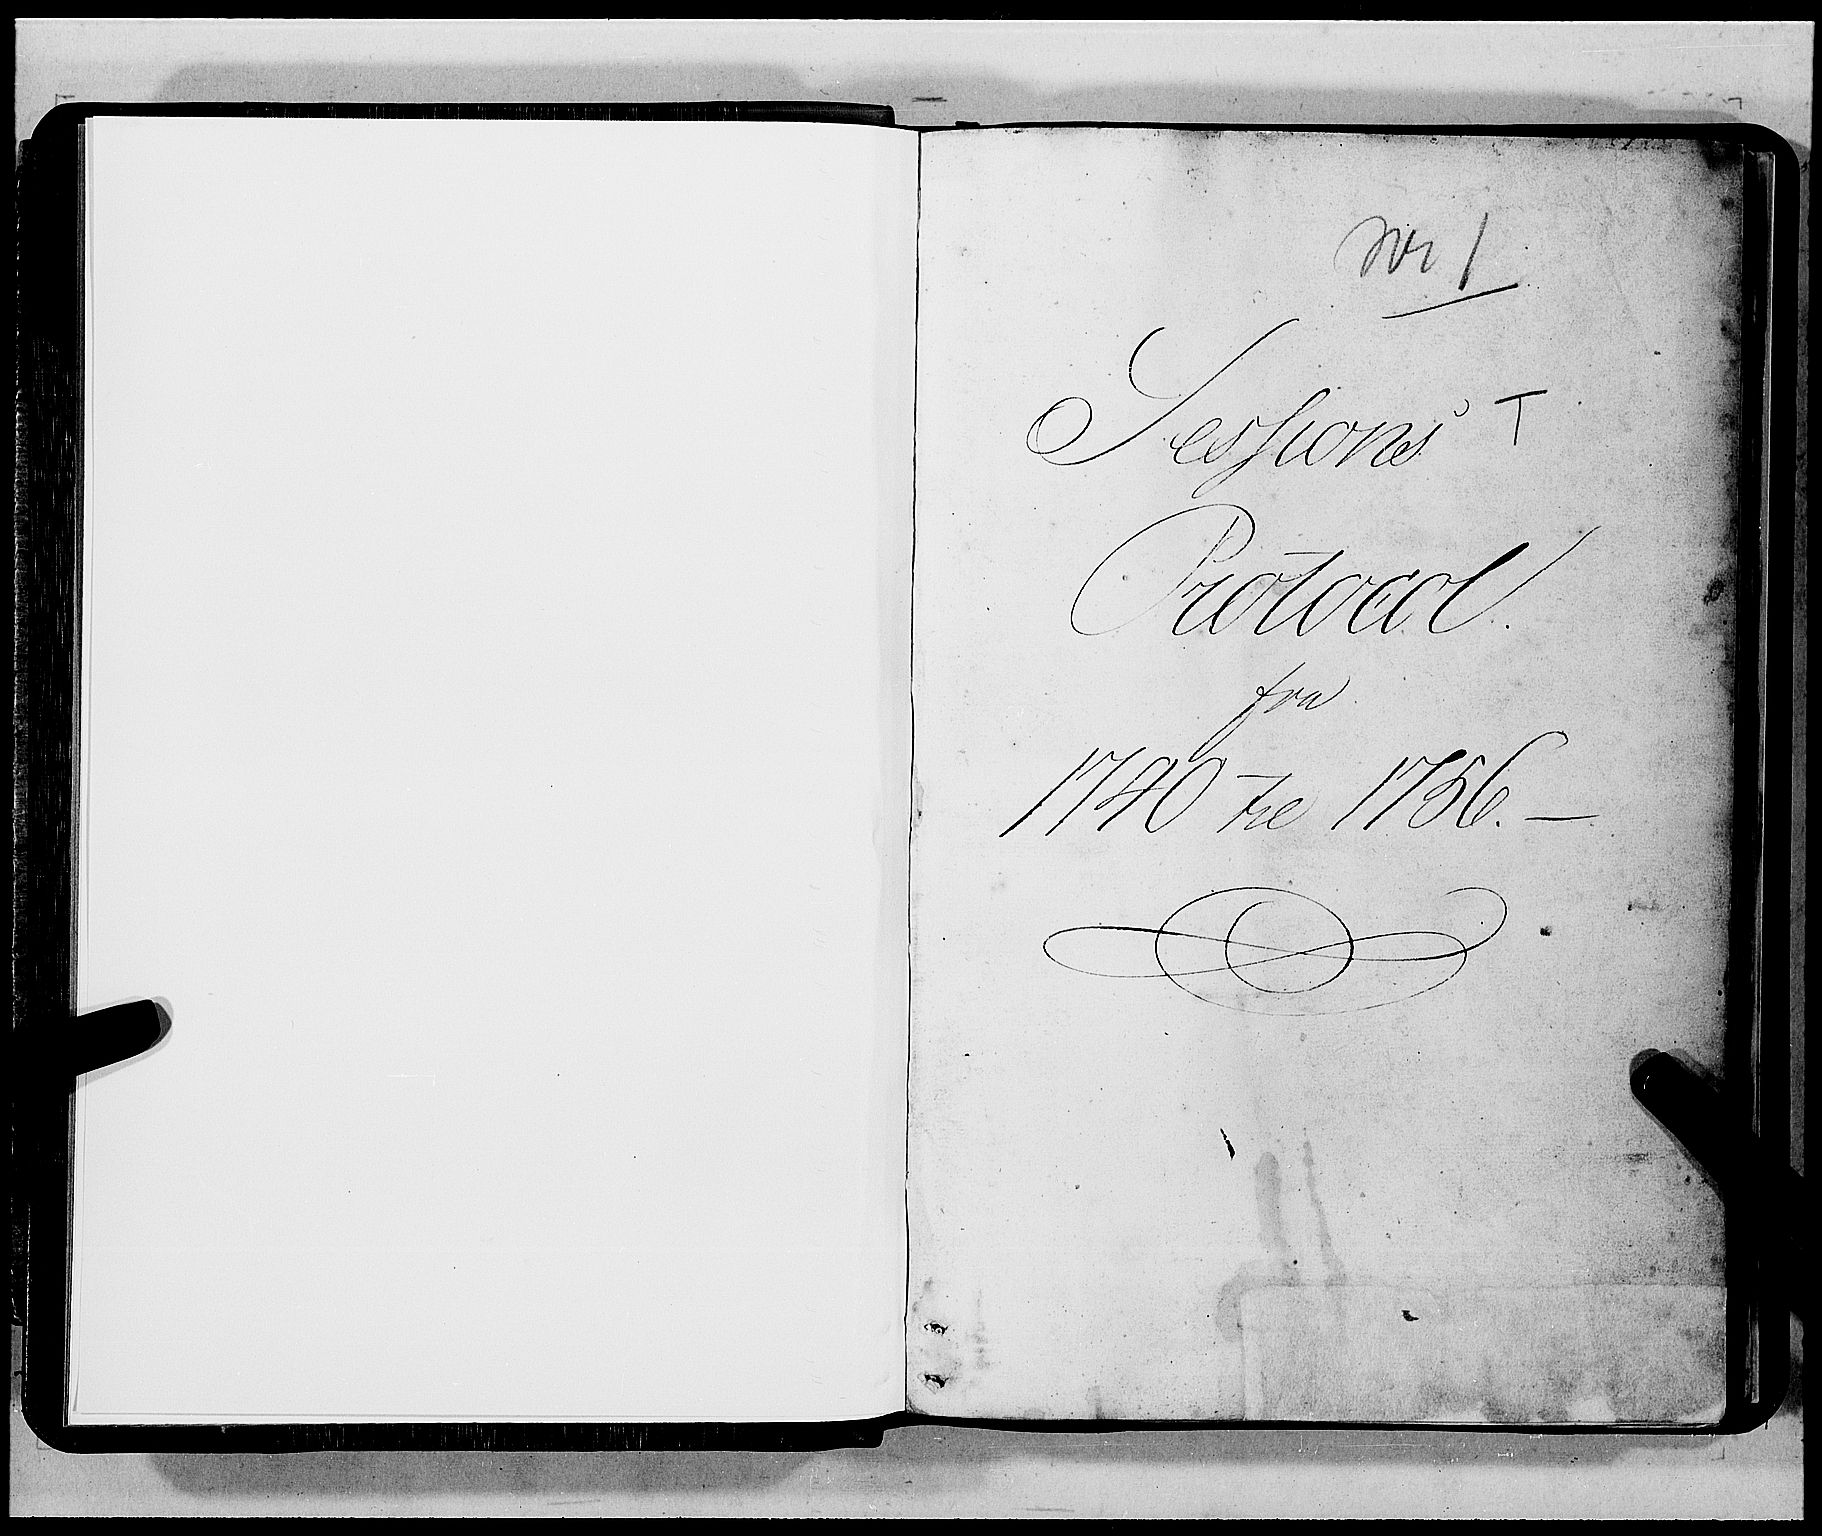 Nr 1
Sessions T
Protocol.
fra
1740 til 1756. —